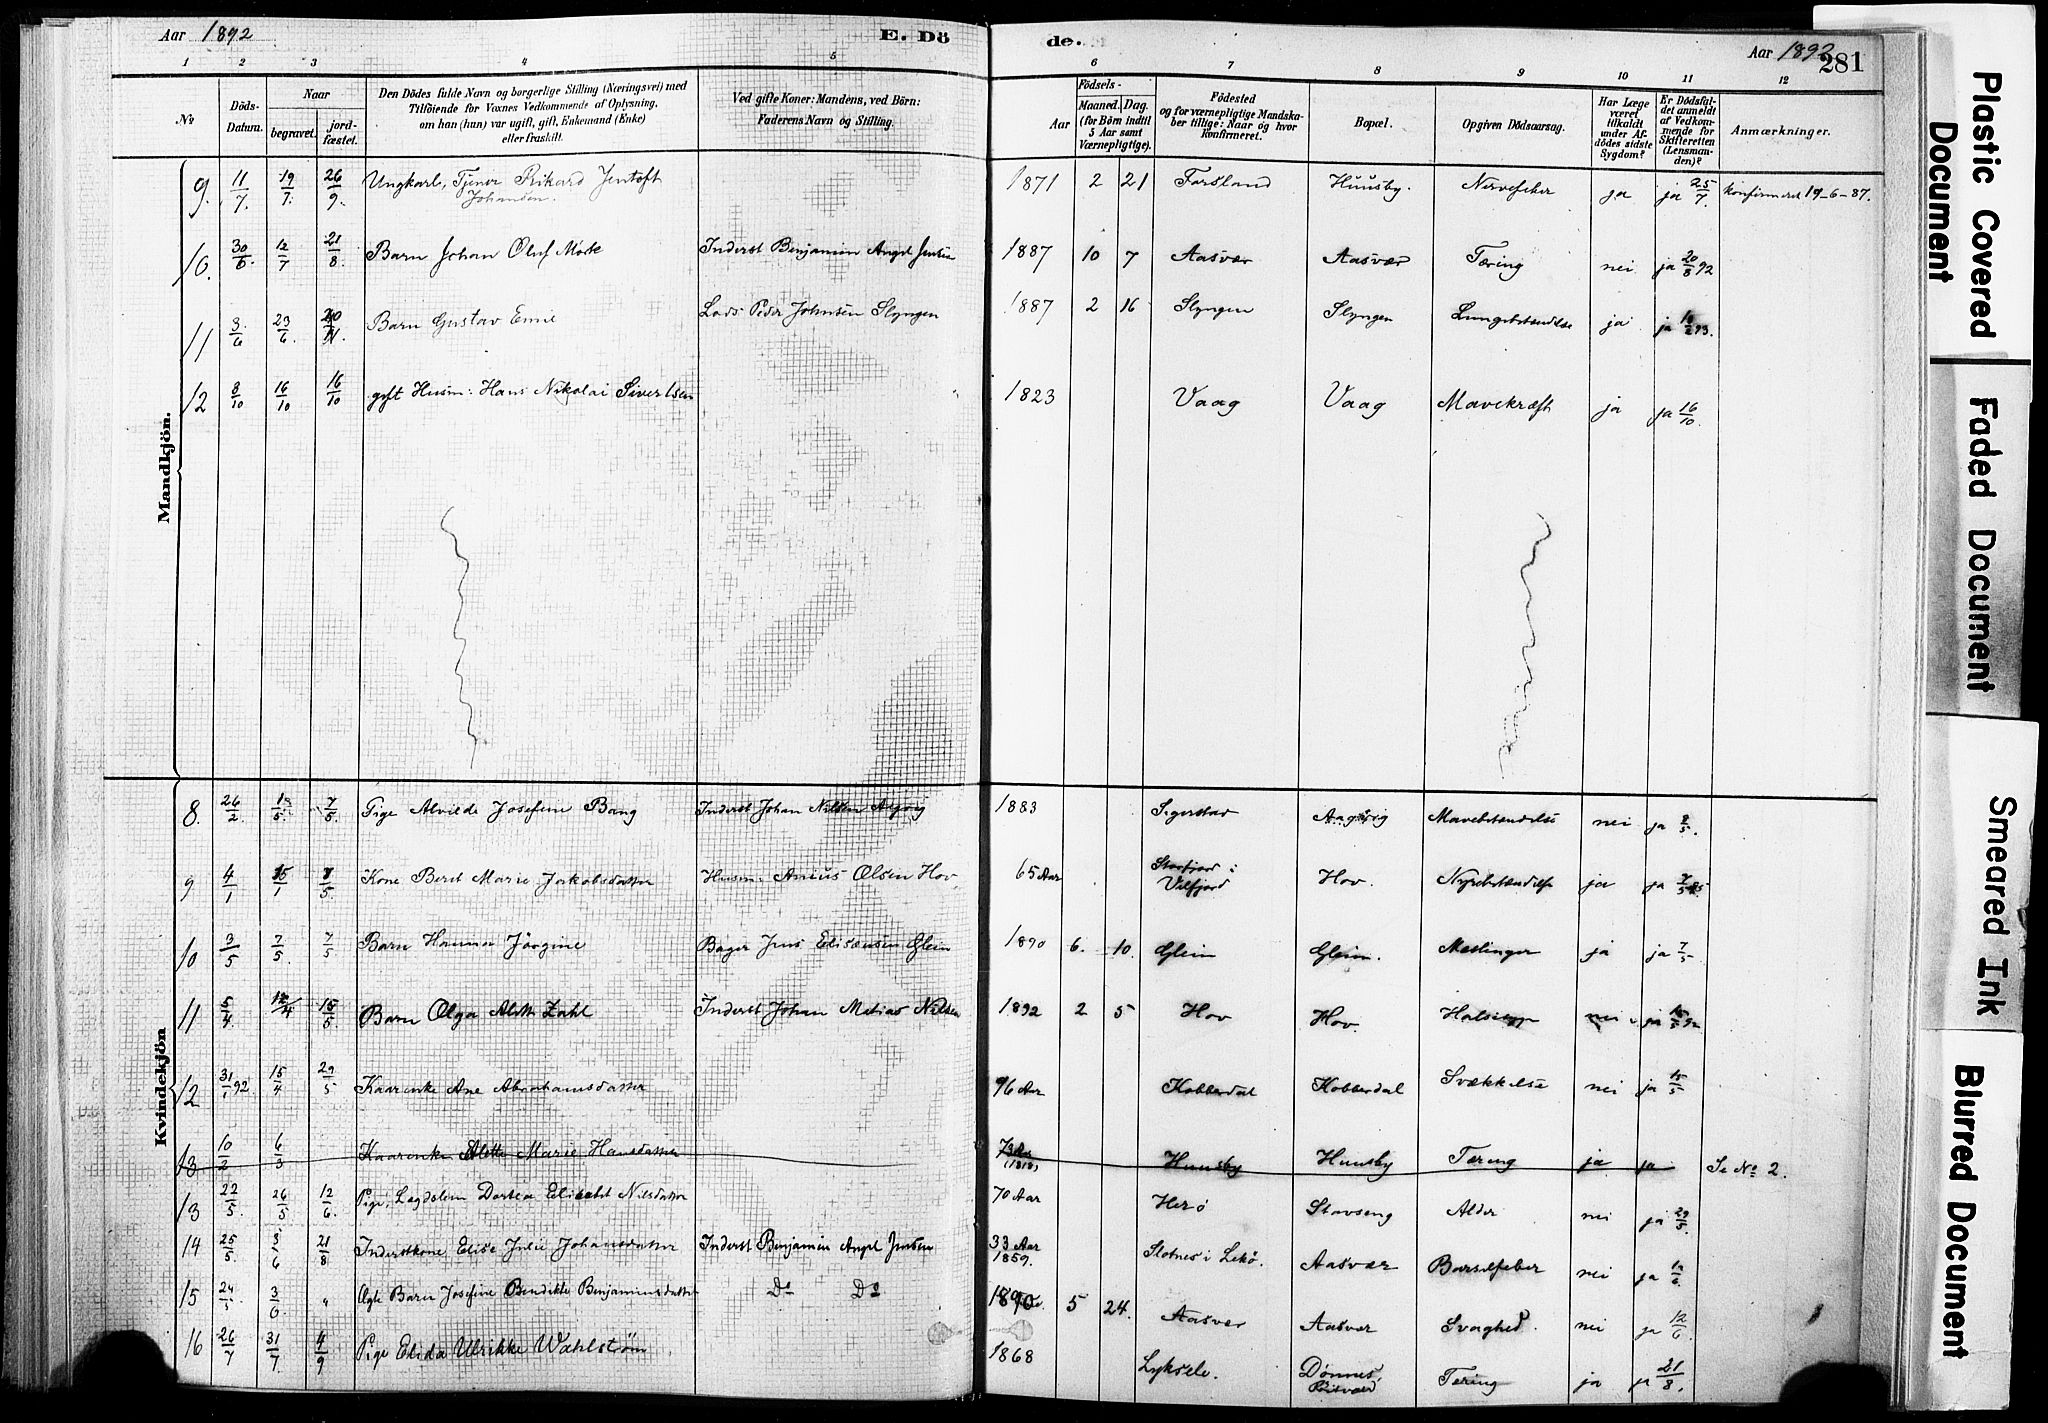 Aar 1892 E. Dö
de. Aar 1892 281
1 2 3 4 5
6 7 8 9 10 11 12
No
Döds-
Datum.
Naar
begravet.
jord-
fæstet.
Den Dödes fulde Navn og borgerlige Stilling (Næringsvei) med
Tilföiende for Voxnes Vedkommende af Oplysning,
om han (hun) var ugift, gift, Enkemand (Enke)
eller fraskilt.
Ved gifte Koner: Mandens, ved Börn:
Faderens Navn og Stilling.
Födsels-
Aar
Maaned.
Dag.
(for Börn indtil
5 Aar samt
Værnepligtige).
Födested
og for værnepligtige Mandska-
ber tillige: Naar og hvor
konfirmeret.
Bopæl.
Opgiven Dödsaarsag.
Har Læge
været
tilkaldt
under Af-
dödes sidste
Sygdom?
Er Dödsfal-
det anmeldt
af Vedkom-
mende for
Skifteretten
(Lensman-
den)?
Anmærkninger.
Mandkjön.
9. 11/7. 19/7. 26/9. Ungkarl, Tjener Rikard Jentoft Johansen. 1871 2 21 Forsland Huusby. Nervefeber ja ja 25/7. konfirmeret 19-6-87.
10. 30/6. 12/7 21/8. Barn Johan Oluf Mørk Inderst Benjamin Angel Jensen 1887 10 7 Aasvær Aasvær Tæring nei ja 20/8 92
11 3/6 23/6. Barn Gustav Emil Lods Peder Johnsen Slyngen 1887 2 16 Slyngen Slyngen Lungebetændelse ja ja 93.
12 8/10 16/10 16/10 gift Husm: Hans Nikolai Sivertsen 1823 Vaag Vaag Mavekræft ja ja 16/10
Kvindekjön
8. 26/2. 7/5. Pige Alvilde Josefine Bang Inderst Johan Nilsen 1883 Sigerstad Mavebetændelse nei ja 8/5.
9 4/1 15/1 Kone Beret Marie Jakobsdatter Husm: Anius Olsen Hov. 65 Aar Storfjord i Vilfjord Hov. Nyrebetændelse ja ja
10 3/5 7/5. 7/5. Barn Hanna Jörgine Bager Jens Elisæusen Glein 1890 6. 10. Glein Glein. Mæslinger ja ja 7/5.
11 5/4. 15/5. Barn Olga Alette Zahl Inderst Johan Matias Nilsen 1892 2 5 Hov Hov. nei ja 92
12 31/1 92. 15/4 29/5 Kaarenke Ane Abrahamsdatter 96 Aar Kobberdal Kobberdal Svækkelse nei ja 15/5
13 10/2 6/3 Kaarenke Alette Marie Hansdatter 73 Aar (1818) Huusby Huusby Tæring ja ja Se No 2.
13 22/5. 26/5 12/6. Pige, Lægdslem Dortea Elisabet Nilsdatter 70 Aar Herø Stavseng Alder nei ja 29/5.
14 25/5. 3/6 21/8 Inderstkone Elise Julie Johansdatter Inderst Benjamin Angel Jensen 33 Aar 1859. Slotnes i Lekø. Aasvær Barselfeber nei ja
15 24/5. 3/6 " Ægte Barn Josefine Bendikte Benjaminsdatter Do Do 1890 5 24. Aasvær Aasvær Svaghed. nei ja 12/6.
16 26/7 31/7. 4/9 Pige Elida Ulrikke Wahlström 1868 Lyksele. Dønnes, Tæring ja ja 21/8.
Plastic Covered
Document
Faded Document
Smeared Ink
Blurred Document